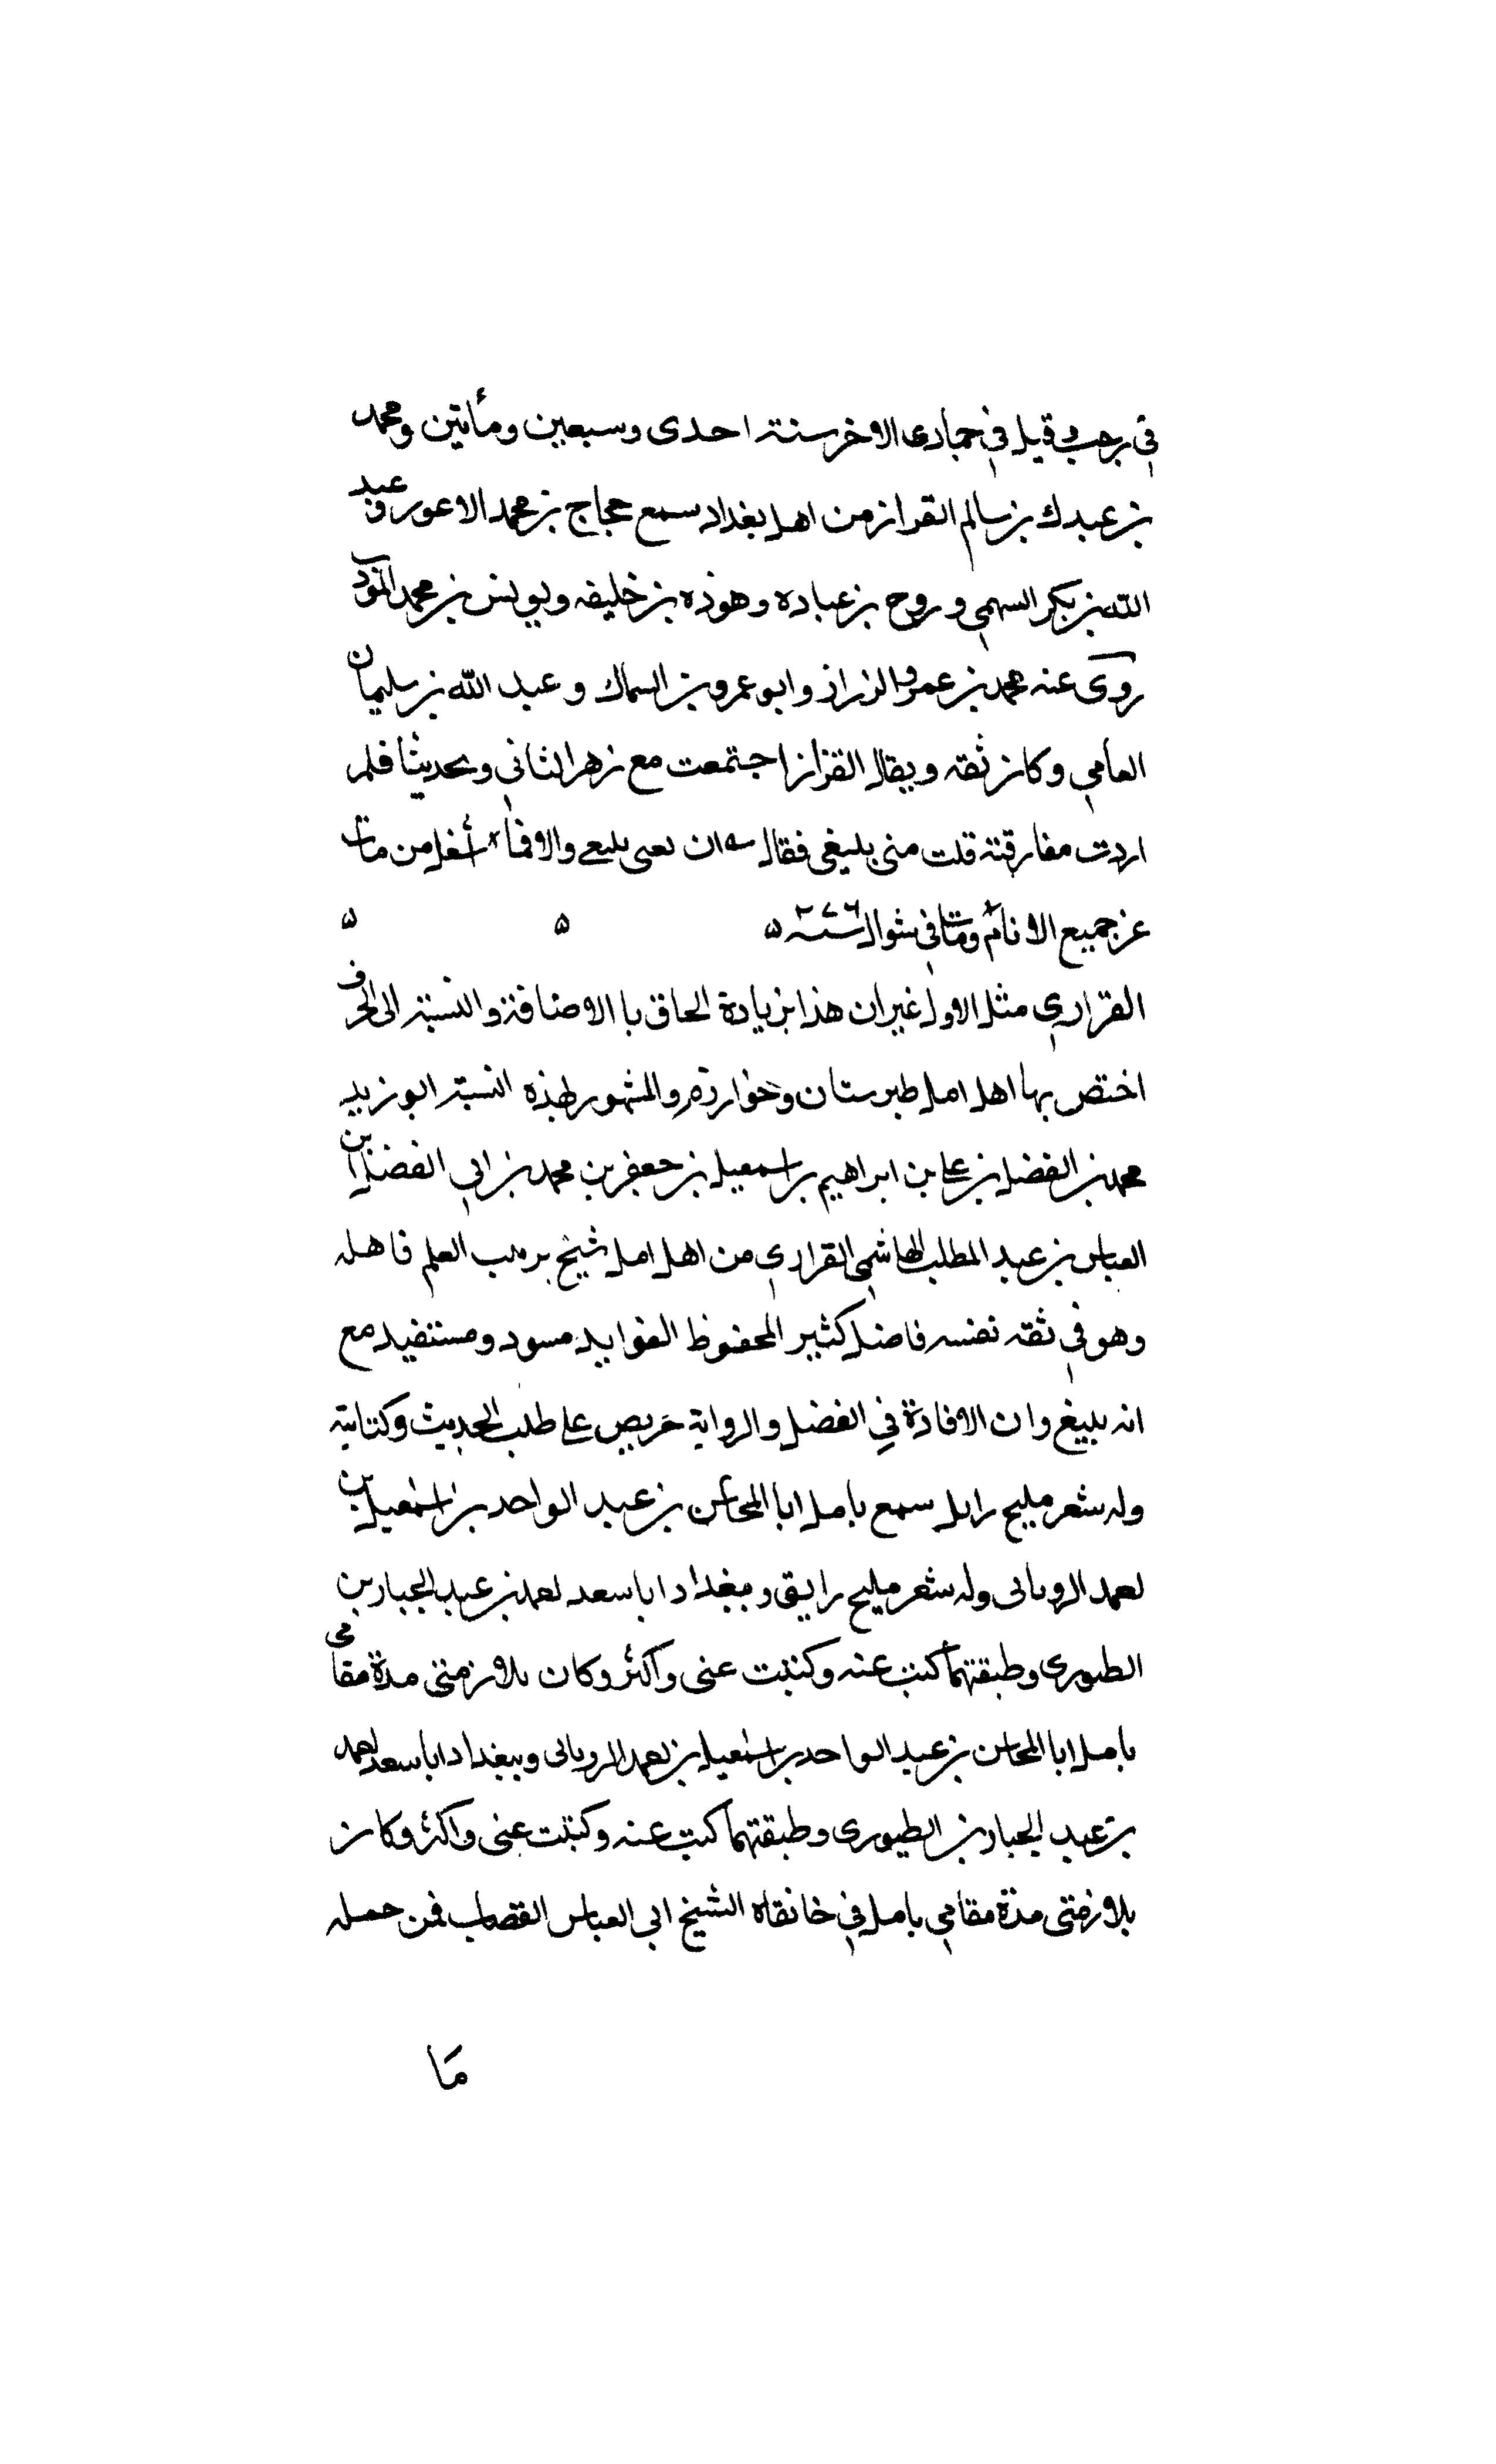 في رجب وقيل في جمادى الاخر سنة احدى وسبعين ومأتين ومحمد
بن عبدك بن سالم القزاز من اهل بغداد سمع حجاج بن محمد الاعور وعبد
الله بن بكر السهمي وروح بن عباده وهوذه بن خليفه ويونس بن محمد المؤدب
روى عنه محمد بن عمرو الرزاز وابو عمرو بن السماك و عبد الله بن سليمان
العامي وكان ثقه ويقال القزاز اجتمعت مع زهر الثاني وتحديثا فلم
اردت مفارقته قلت منى يليغى فقال ان يلىعى والا فما أغل من مات
عن جميع الانام ومات في شوال سنة ٢٧٦ ه ه ه
القراري مثل الاول غير ان هذا بزيادة الحاق با الاضافة والنسبة الى الحرف
اختص بها اهل امل طبرستان وخوارزم والمشهور لهذه النسبة ابو زيد
محمد بن الفضل بن على بن ابراهيم بن اسمعيل بن جعفر بن محمد بن ابي الفضل بن
العباس بن عبد المطلب الهاشمي القراري من اهل امل شيخ العلم فاهله
وهو في ثقه نفسه فاضل كثير المحفوظ الفوايد مسود ومستفيد مع
انه بليغ وان الافادة في الفضل والرواية حريص على طلب الحديث وكتابته
وله شعر مليح رايل سمع بامل ابا المحاسن بن عبد الواحد بن اسمعيل بن
لحمد الرويانى وله شعر مليح رايق وببغداد ابا سعد لحمد بن عبد الجبار بن
الطيورى وطبقتهما كتبت عنه وكتبت عنى واكثر وكان يلازمتنى مدة مقامي
بامل ابا المحاسن بن عبد الواحد بن اسمعيل بن لحمد الرويانى وببغداد ابا سعد لحمد
بن عبد الجبار بن الطيورى وطبقتهما كتبت عنه وكتبت عنى واكثر وكان
يلازمتنى مدة مقامي بامل في خانقاه الشيخ ابي العباس القصاب فمن حمله
ما